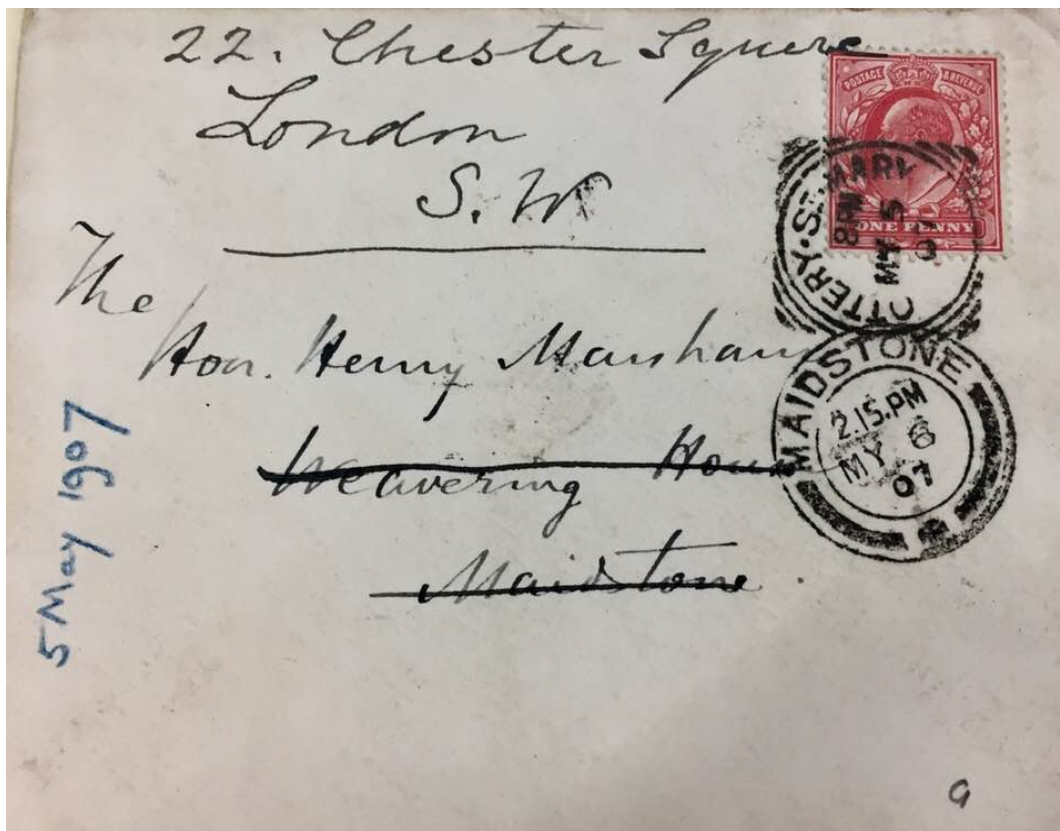 22. Chester Square
London
S.W
The
Hon. Henry Marsham
Weavering House
Maidstone
5 May 1907
POSTAGE & REVENUE
ONE PENNY
OTTERY·ST MARY
8 PM
MY 5
07
MAIDSTONE
2.15.PM
MY 6
07
a